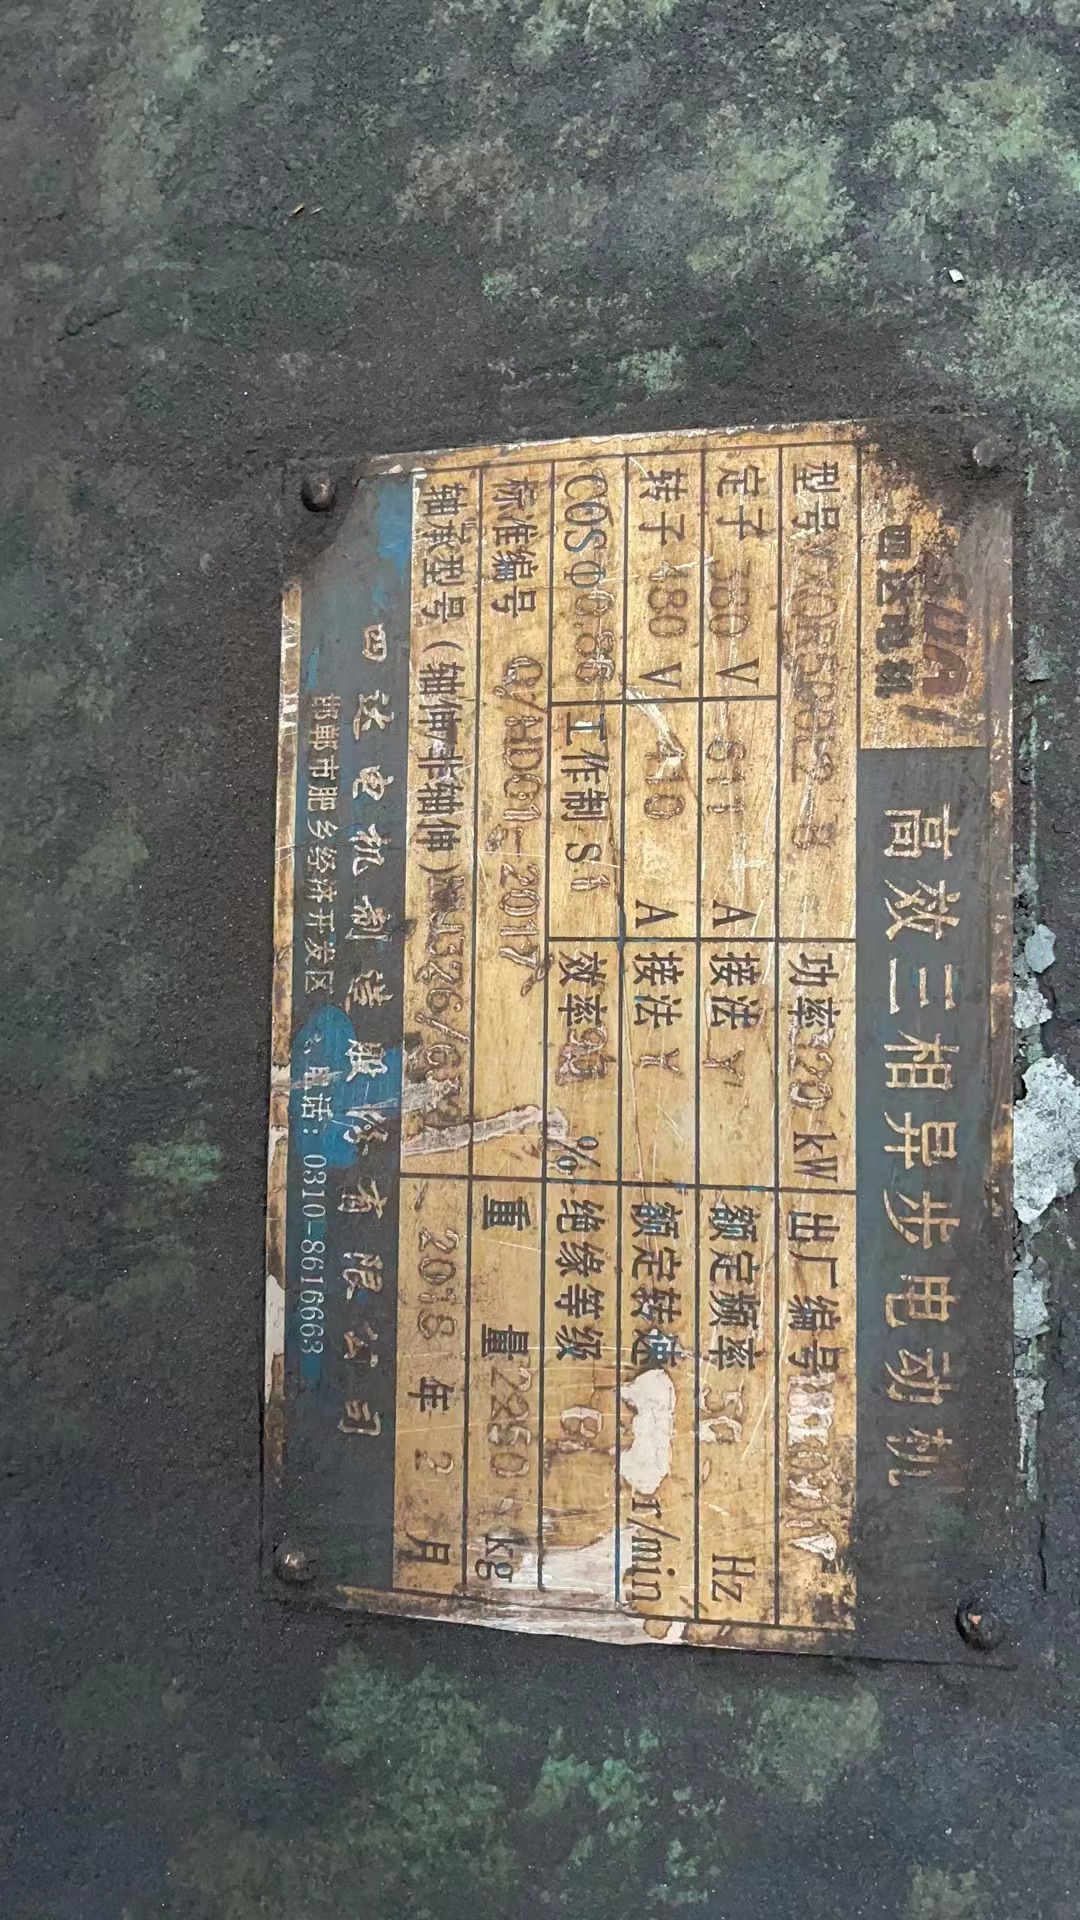 四达电机
高效三相异步电动机
型号 功率 220 kW 出厂编号
定子 380 V 611 A 接法 Y 额定频率 50 Hz
转子 480 V 410 A 接法 Y 额定转速 r/min
COSΦ0.86 工作制 S1 效率 % 绝缘等级
标准编号 Q/HDG1-2017 重量 2250 kg
轴承型号(轴伸/非轴伸) 2018 年 2 月
四达电机制造股份有限公司
邯郸市肥乡经济开发区 电话: 0310-8616663